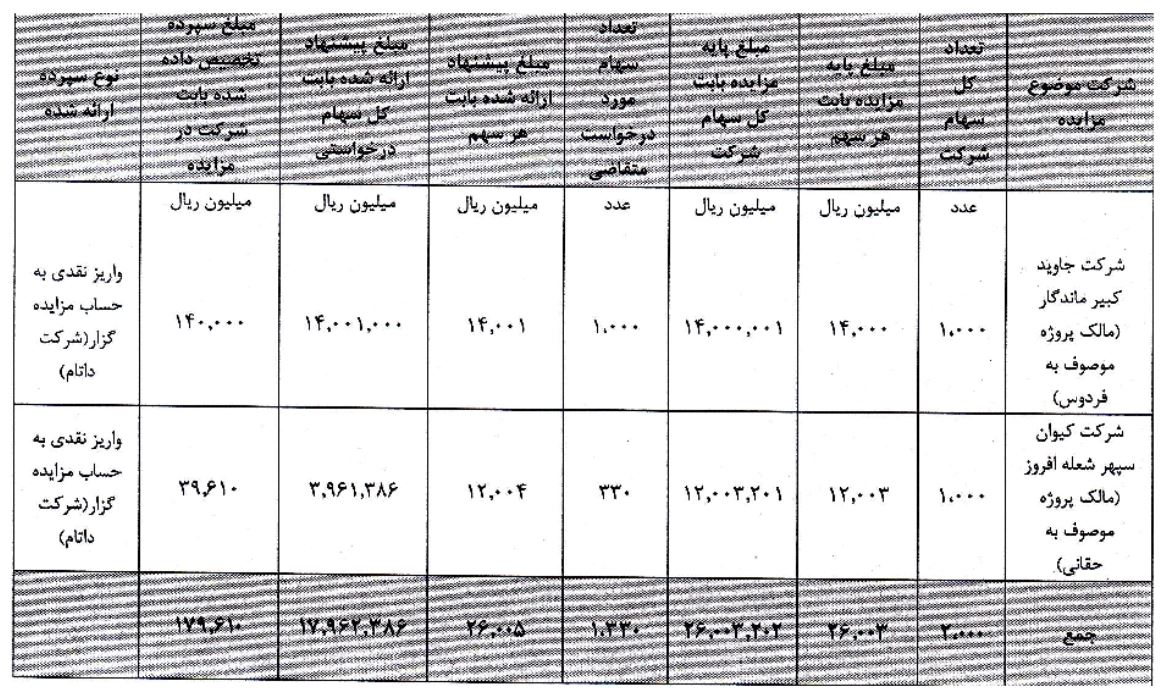 شرکت موضوع
مزایده
تعداد
کل
سهام
شرکت
مبلغ پایه
مزایده بابت
هر سهم
مبلغ پایه
مزایده بابت
کل سهام
شرکت
تعداد
سهام
مورد
درخواست
متقاضی
مبلغ پیشنهاد
ارائه شده بابت
هر سهم
مبلغ پیشنهاد
ارائه شده بابت
کل سهام
درخواستی
مبلغ سپرده
تخصیص داده
شده بابت
شرکت در
مزایده
نوع سپرده
ارائه شده
عدد
میلیون ریال
میلیون ریال
عدد
میلیون ریال
میلیون ریال
میلیون ریال
شرکت جاوید
کبیر ماندگار
(مالک پروژه
موصوف به
فردوس)
۱،۰۰۰
۱۴,۰۰۰
۱۴,۰۰۰,۰۰۱
۱،۰۰۰
۱۴,۰۰۱
۱۴,۰۰۱,۰۰۰
۱۴۰,۰۰۰
واریز نقدی به
حساب مزایده
گزار(شرکت
داتام)
شرکت کیوان
سپهر شعله افروز
(مالک پروژه
موصوف به
حقانی)
۱،۰۰۰
۱۲,۰۰۳
۱۲,۰۰۳,۲۰۱
۳۳۰
۱۲,۰۰۴
۳,۹۶۱,۳۸۶
۳۹,۶۱۰
واریز نقدی به
حساب مزایده
گزار(شرکت
داتام)
جمع
۲،۰۰۰
۲۶,۰۰۳
۲۶,۰۰۳,۲۰۲
۱،۳۳۰
۲۶,۰۰۵
۱۷,۹۶۲,۳۸۶
۱۷۹,۶۱۰